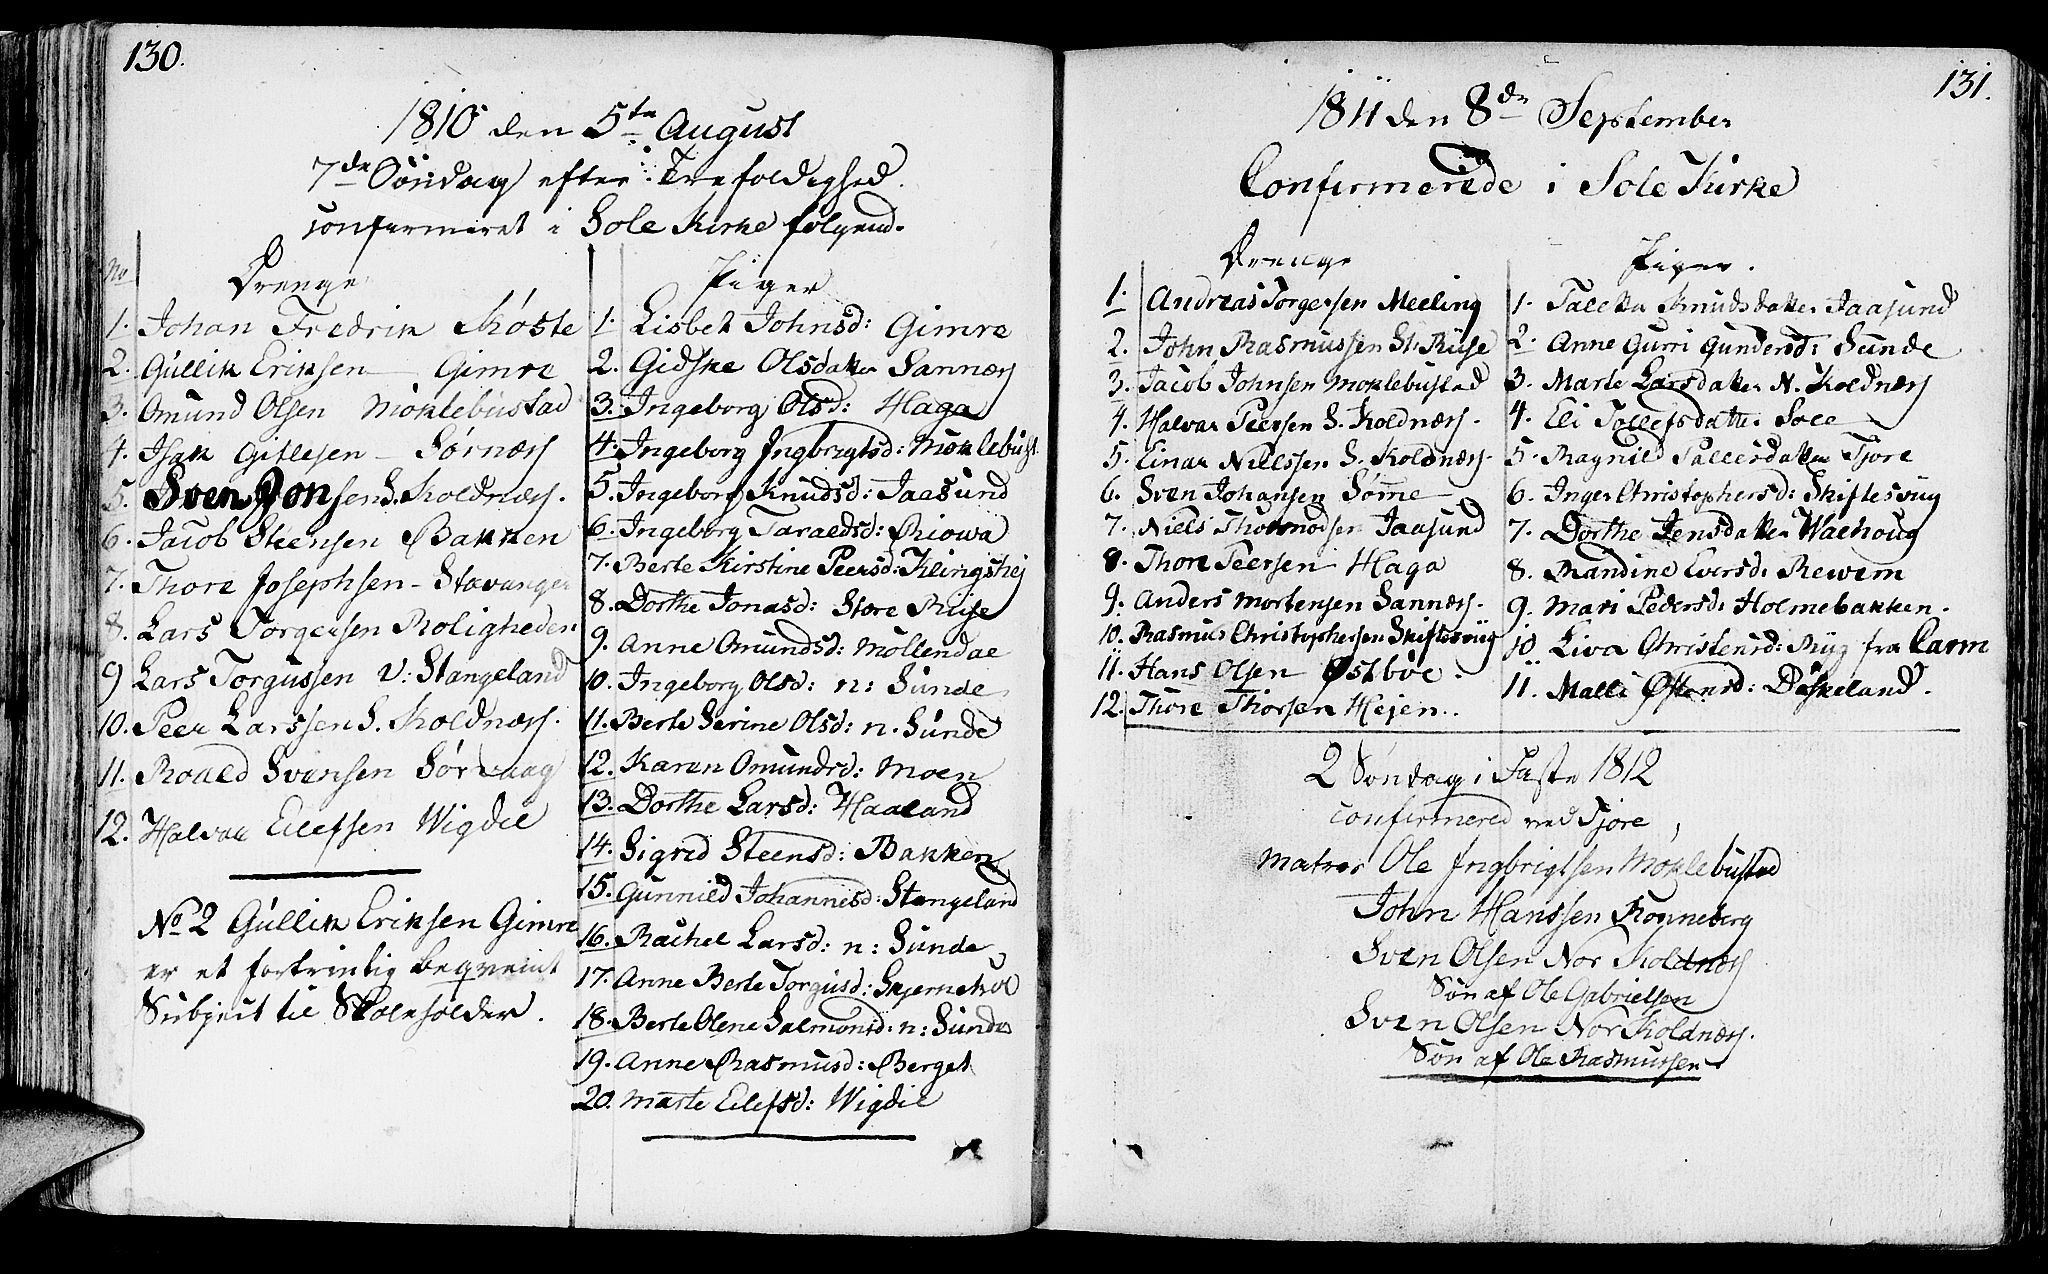 130.
1810 den 5te August
7de Söndag efter Trefoldighed.
confirmeret i Sole Kirke følgend.
No Drenge
1. Johan Fredrik Skøste
2. Gullik Eriksen Gimre
3. Omund Olsen Moklebustad
4. Isak Gitlesen Sørnæss
5. Sven Jonsen S. Koldnæss.
6. Jacob Steensen Bakken
7. Thore Josephsen - Stavanger
8. Lars Torgersen Roligheden
9 Lars Torgussen V: Stangeland
10. Peer Larssen S. Koldnæss.
11. Roald Svensen Sørvaag
12. Halvar Eilefsen Wigdel
No 2 Gullik Eriksen Gimre
er et fortrinlig beqvemt
Subject til Skoleholder.
Piger
1. Lisbet Johnsd: Gimre
2. Gidske Olsdatter Sannæss
3. Ingeborg Olsd: Haga
4. Ingeborg Ingbrigtsd: Moklebust
5. Ingeborg Knudsd: Jaasund
6. Ingeborg Taraldsd:
7. Berte Kirstine Peersd: Klingshej
8. Dorthe Jonasd: Store Risse
9. Anne Omundsd: Møllendal
10. Ingeborg Olsd: n: Sunde
11. Berte Serine Olsd: n. Sunde
12. Karen Omundsd: Moen
13. Dorthe Larsd: Haaland
14. Sigrid Steensd: Bakken
15. Gunnild Johannisd: Stangeland
16. Rachel Larsd: n: Sunde
17. Anne Berte Torgusd: Skjernehol
18. Berte Olene Salmonsd: n: Sunde
19. Anne Rasmusd: Berget
20. Marte Eilefsd: Wigdel
131.
1811 den 8de September
Confirmerede i Sole Kirke
Drenge
1. Andreas Torgersen Meeling
2. John Rasmussen St: Risse
3. Jacob Johnsen Moklebustad
4. Halvar Peersen S. Koldnæss.
5. Einar Nielssen S. Koldnæss.
6. Sven Johansen Sømme
7. Niels Thormodsen Jaasund
8. Thore Peersen Haga
9. Anders Mortensen Sannæss.
10. Rasmus Christophersen Skiftesvüg
11. Hans Olsen Østböe.
12. Thore Thorsen Hejen.
Piger.
1. Taletta Knudsdatter Jaasund
2. Anne Gurri Gundersd: Sunde
3. Marte Larsdatter N. Koldnæss
4. Eli Tollefsdatter Sole
5. Ragnild Tallersdatter Tjore
6. Inger Christophersd: Skiftesvug
7. Dorthe Jensdatter Walhoug
8. Randine Eversd: Rewem
9. Mari Pedersd: Holmebakken.
10 Liva Christensd: Ryg fra Carm
11. Malli Østensd: Døskeland.
2 Søndag i Faste 1812
confirmered ved Tjore,
Matros Ole Ingbrigtsen Moklebustad
John Hanssen Ronneberg
Sven Olsen Nor Koldnæss
Søn af Ole Gabrielsen
Sven Olsen Nor Koldnæss.
Søn af Ole Rasmussen